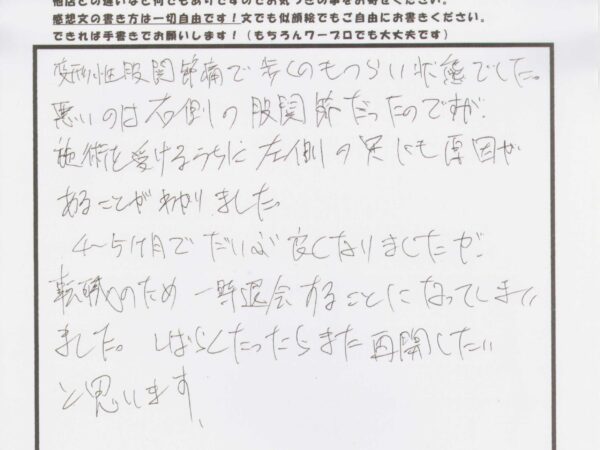 他店との違いなど何でもありですのでお気づきの事をお寄せください。
感想文の書き方は一切自由です！文でも似顔絵でもご自由にお書きください。
できれば手書きでお願いします！（もちろんワープロでも大丈夫です）
変形性股関節痛で歩くのもつらい状態でした。
悪いのは右側の股関節だったのですが、
施術を受けるうちに左側の足にも原因が
あることがわかりました。
4〜5ヶ月でだいぶ良くなりましたが、
転職のため一時退会することになってしまい
ました。しばらくたったらまた再開したい
と思います、